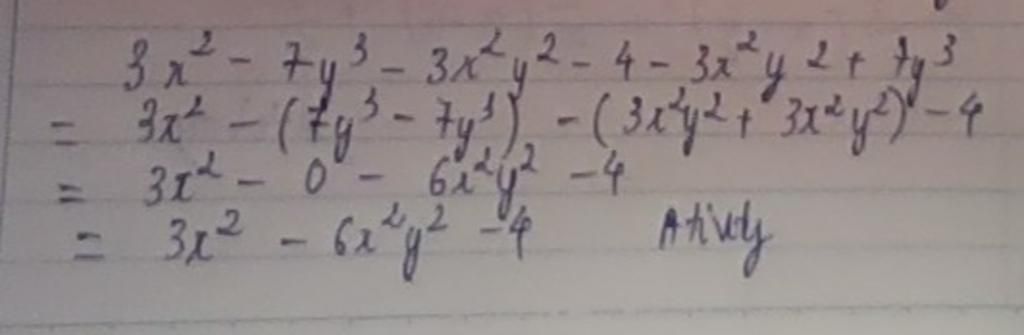 3x² - 7y³ - 3x²y² - 4 - 3x²y² + 7y³
= 3x² - (7y³ - 7y³) - (3x²y² + 3x²y²) - 4
= 3x² - 0 - 6x²y² - 4
= 3x² - 6x²y² - 4